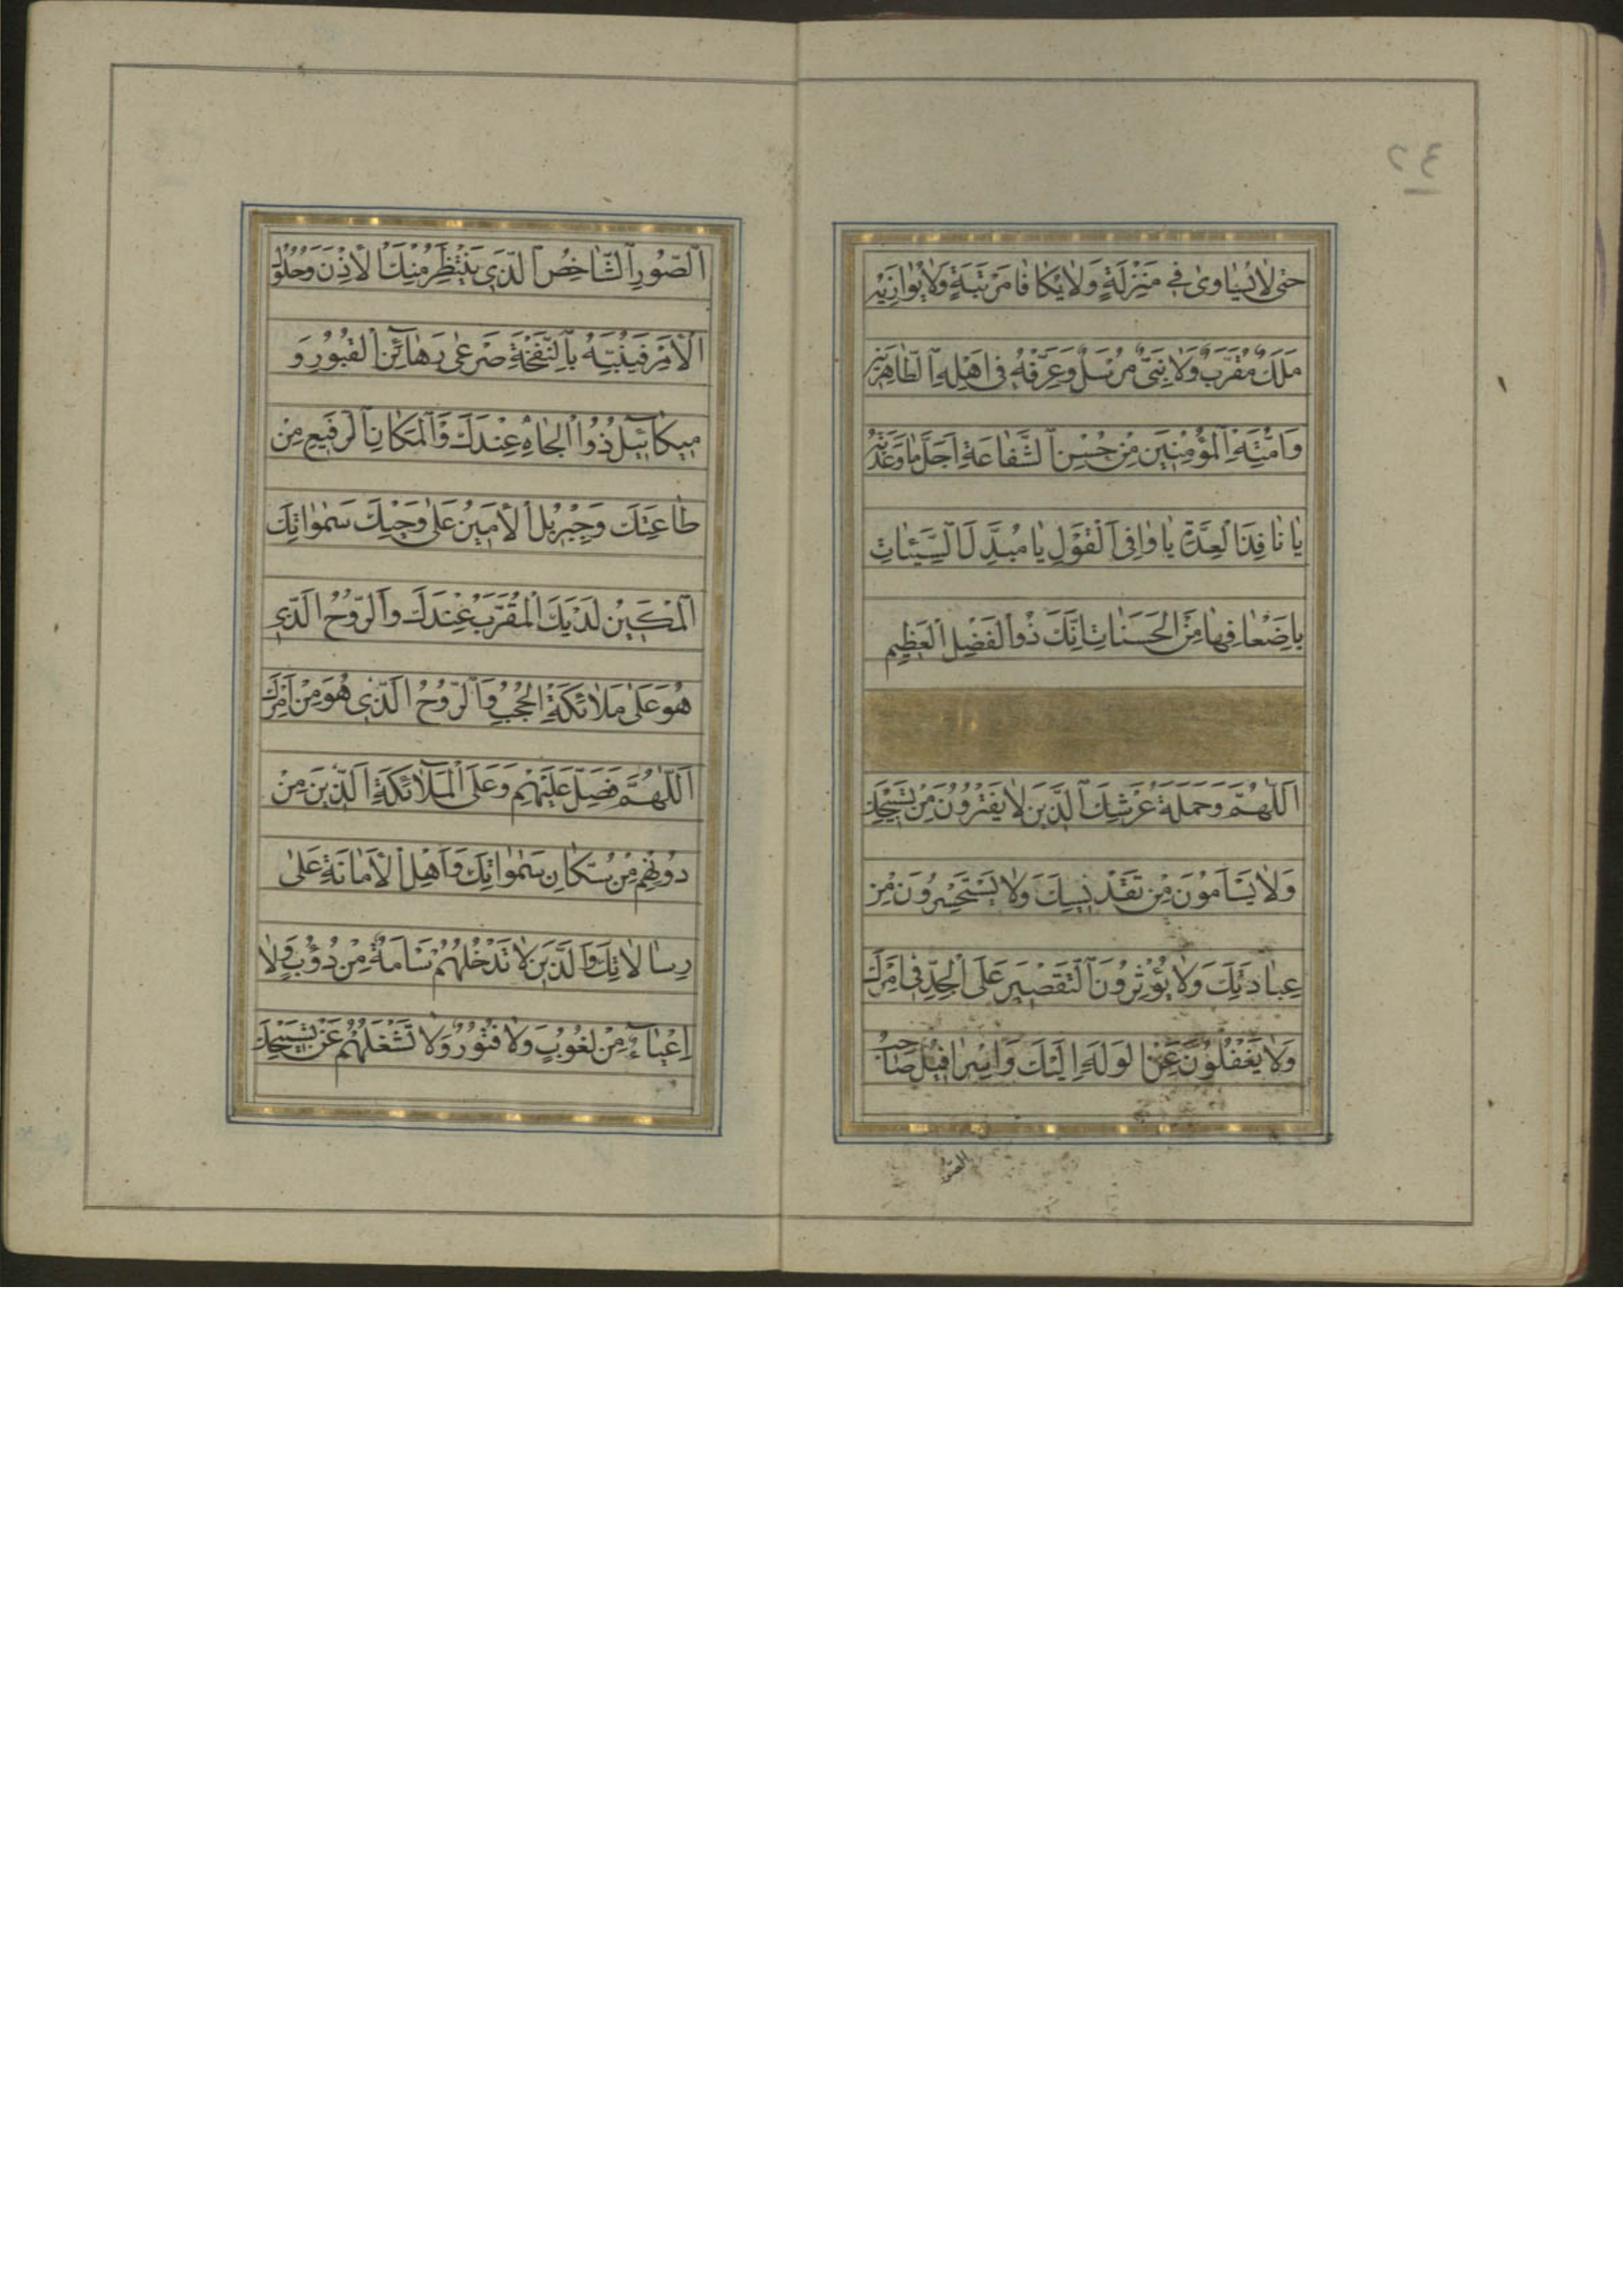 ٢٤
حَتّٰى لَا يُسَاوٰى فِي مَنْزِلَةٍ وَلَا يُكَافَا مَرْتَبَةٍ وَلَا يُوَازِيَهُ
مَلَكٌ مُقَرَّبٌ وَلَا نَبِيٌّ مُرْسَلٌ وَعَرِّفْهُ فِي اَهْلِهِ الطَّاهِرِينَ
وَاُمَّتِهِ الْمُؤْمِنِينَ مِنْ حُسْنِ الشَّفَاعَةِ اَجَلَّ مَا وَعَدْتَهُ
يَا نَافِذَ الْعِدَّةِ يَا وَافِيَ الْقَوْلِ يَا مُبَدِّلَ السَّيِّئَاتِ
بِاَضْعَافِهَا مِنَ الْحَسَنَاتِ اِنَّكَ ذُو الْفَضْلِ الْعَظِيمِ
اَللّٰهُمَّ وَحَمَلَةُ عَرْشِكَ الَّذِينَ لَا يَفْتُرُونَ مِنْ تَسْبِيحِكَ
وَلَا يَسْاَمُونَ مِنْ تَقْدِيسِكَ وَلَا يَسْتَحْسِرُونَ مِنْ
عِبَادَتِكَ وَلَا يُؤْثِرُونَ التَّقْصِيرَ عَلَى الْجِدِّ فِي اَمْرِكَ
وَلَا يَغْفُلُونَ عَنِ الْوَلَهِ اِلَيْكَ وَاِسْرَافِيلُ صَاحِبُ
الصّور
اَلصُّورِ الشَّاخِصُ الَّذِي يَنْتَظِرُ مِنْكَ الْاِذْنَ وَحُلُولَ
الْاَمْرِ فَيُنَبِّهُ بِالنَّفْخَةِ صَرْعٰى رَهَائِنِ الْقُبُورِ وَ
مِيكَائِيلُ ذُو الْجَاهِ عِنْدَكَ وَالْمَكَانِ الرَّفِيعِ مِنْ
طَاعَتِكَ وَجِبْرِيلُ الْاَمِينُ عَلٰى وَحْيِكَ سَمٰوَاتِكَ
اَلْمَكِينُ لَدَيْكَ الْمُقَرَّبُ عِنْدَكَ وَالرُّوحُ الَّذِي
هُوَ عَلٰى مَلَائِكَةِ الْحُجُبِ وَالرُّوحُ الَّذِي هُوَ مِنْ اَمْرِكَ
اَللّٰهُمَّ فَصَلِّ عَلَيْهِمْ وَعَلَى الْمَلَائِكَةِ الَّذِينَ مِنْ
دُونِهِمْ مِنْ سُكَّانِ سَمٰوَاتِكَ وَاَهْلِ الْاَمَانَةِ عَلٰى
رِسَالَاتِكَ وَالَّذِينَ لَا تَدْخُلُهُمْ سَاْمَةٌ مِنْ دُؤُبٍ وَلَا
اِعْيَاءٌ مِنْ لُغُوبٍ وَلَا فُتُورٌ وَلَا تَشْغَلُهُمْ عَنْ تَسْبِيحِكَ